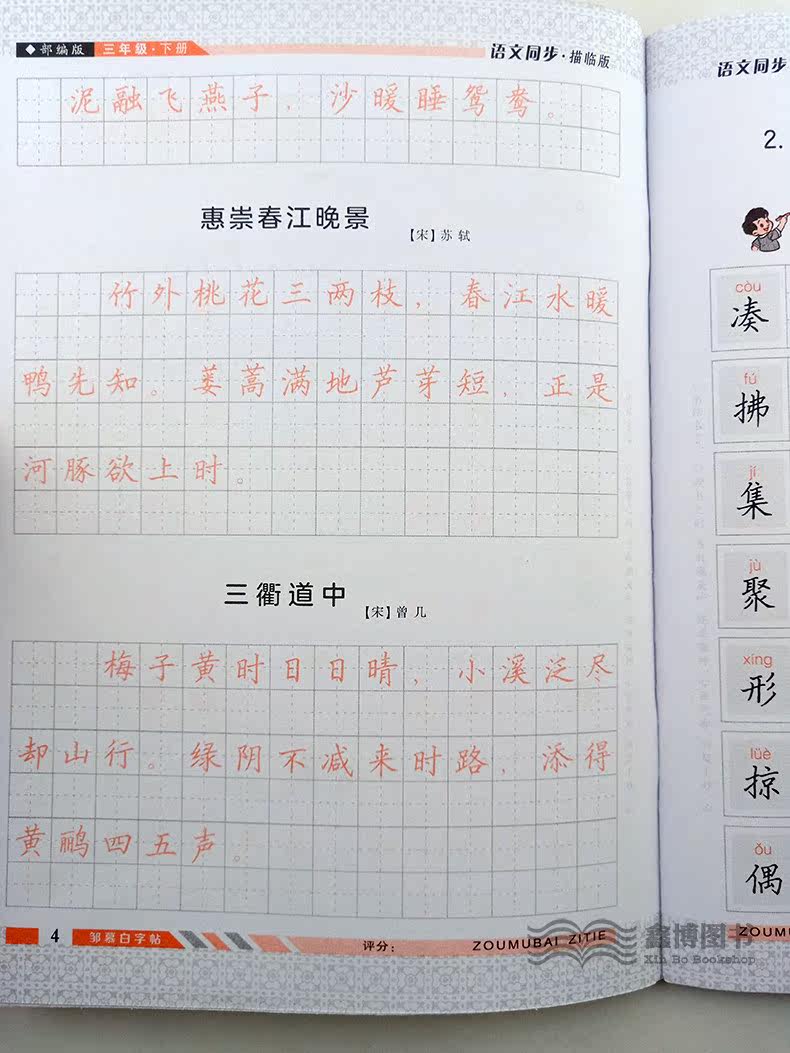 部编版 三年级·下册
语文同步·描临版
泥融飞燕子，沙暖睡鸳鸯。
惠崇春江晚景
【宋】苏轼
竹外桃花三两枝，春江水暖
鸭先知。蒌蒿满地芦芽短，正是
河豚欲上时。
三衢道中
【宋】曾几
梅子黄时日日晴，小溪泛尽
却山行。绿阴不减来时路，添得
黄鹂四五声。
4 邹慕白字帖
评分：
ZOUMUBAI ZITIE
语文同步
2.
còu
凑
fú
拂
jí
集
jù
聚
xíng
形
lüè
掠
ǒu
偶
ZOUMU
鑫博图书
Xin Bo Bookshop